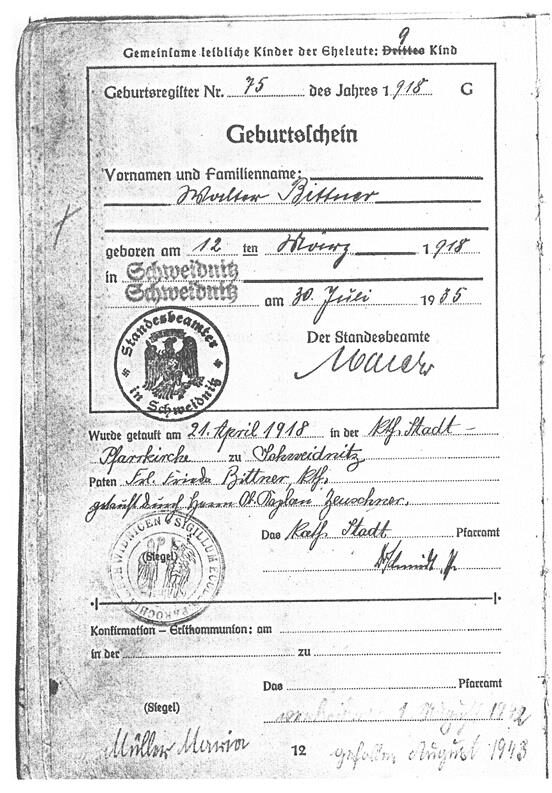 9
Gemeinsame leibliche Kinder der Eheleute: Drittes Kind
Geburtsregister Nr. 75 des Jahres 1918 G
Geburtsschein
Vornamen und Familienname:
Walter Bittner
geboren am 12 ten März 1918
in Schweidnitz
Schweidnitz am 30. Juli 1935
Der Standesbeamte
Standesbeamter
in Schweidnitz
Wurde getauft am 21. April 1918 in der kth. Stadt-
Pfarrkirche zu Schweidnitz
Paten Frl. Frieda Bittner, kth.
getauft durch Herrn Ob. Kaplan Zeuschner.
Das Kath. Stadt Pfarramt
Schmidt, P.
SIGILLUM
(Siegel)
Konfirmation – Erstkommunion: am
in der zu
Das Pfarramt
(Siegel)
verheiratet 1 August 1942
Müller Maria 12 gefallen August 1943